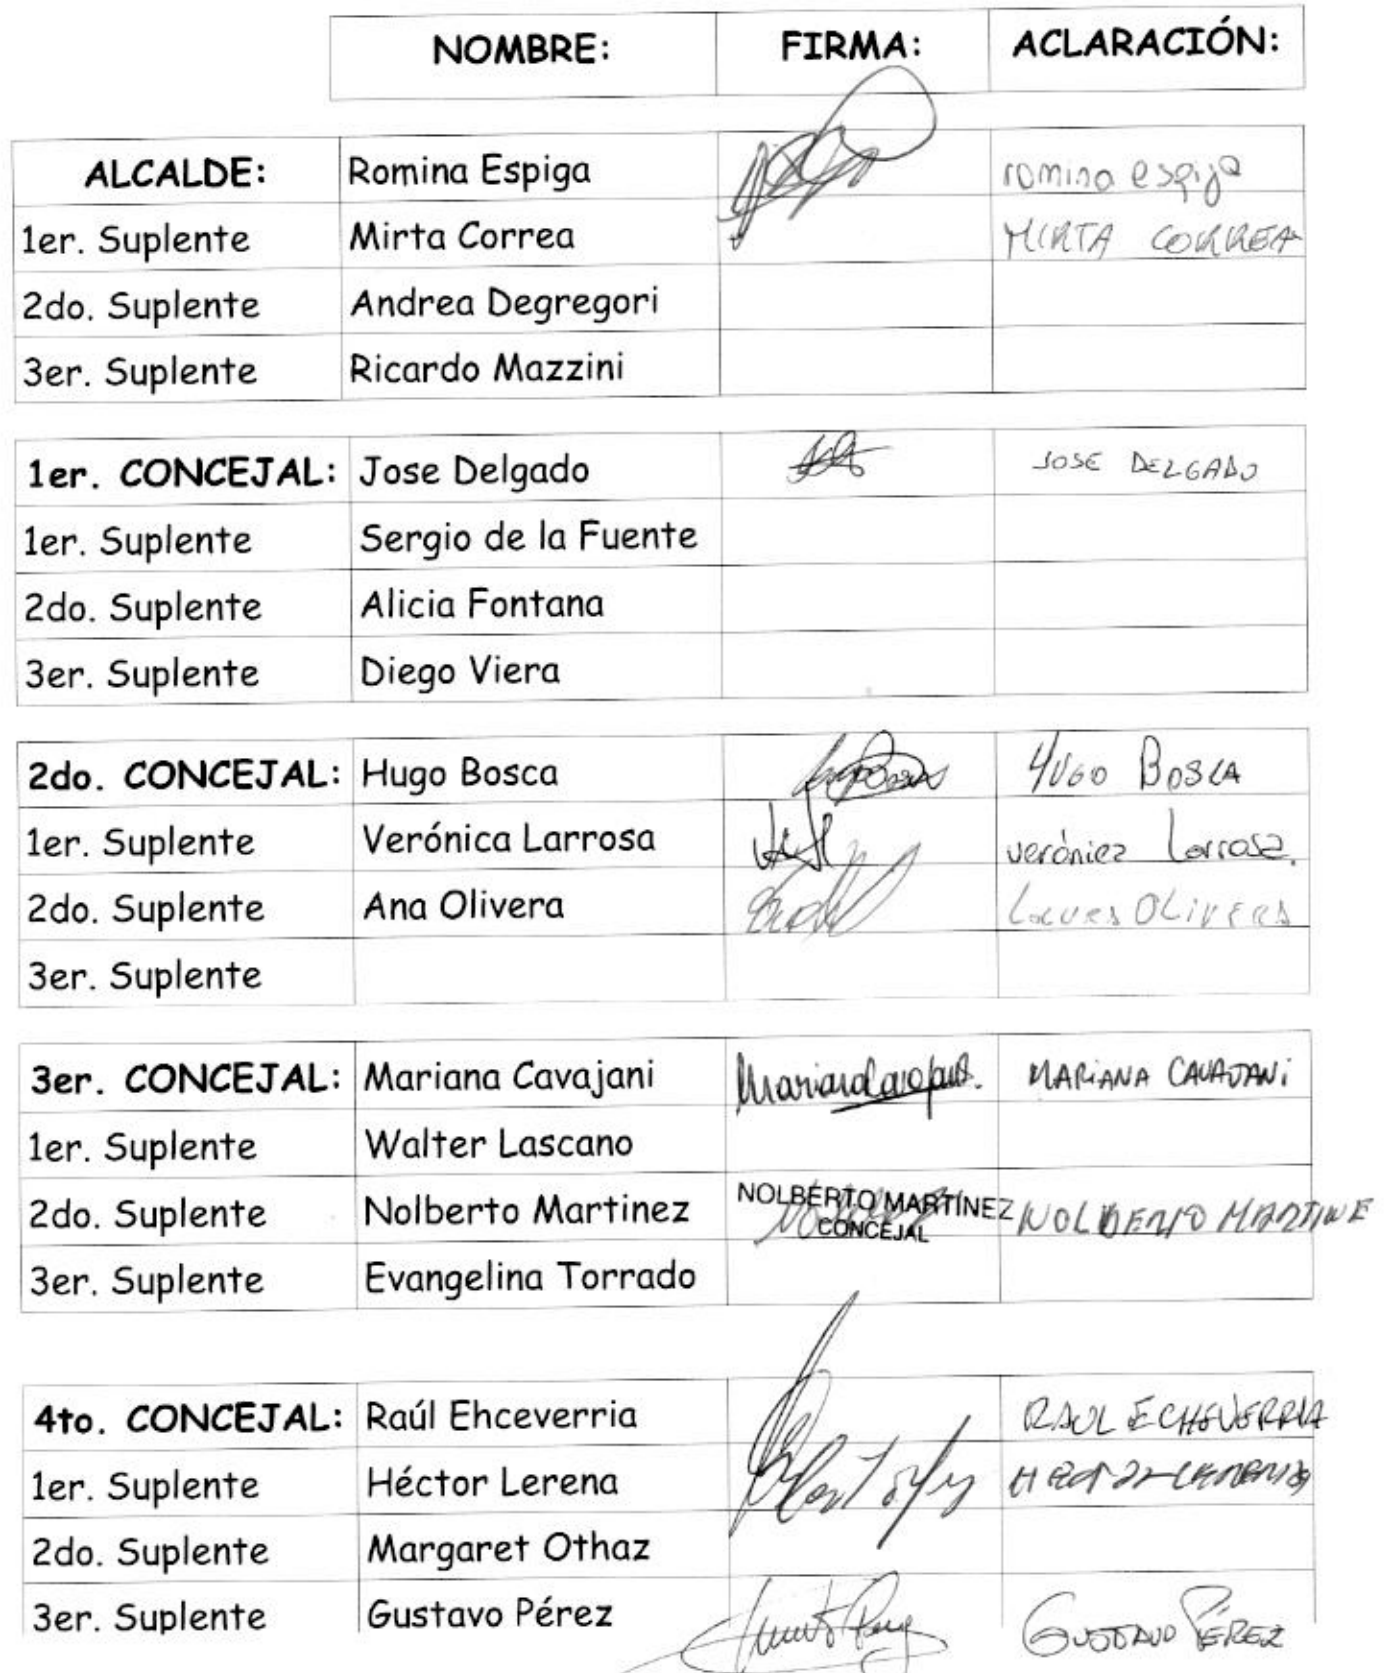 NOMBRE: FIRMA: ACLARACIÓN:
ALCALDE: Romina Espiga romina espiga
1er. Suplente Mirta Correa MIRTA CORREA
2do. Suplente Andrea Degregori
3er. Suplente Ricardo Mazzini
1er. CONCEJAL: Jose Delgado JOSE DELGADO
1er. Suplente Sergio de la Fuente
2do. Suplente Alicia Fontana
3er. Suplente Diego Viera
2do. CONCEJAL: Hugo Bosca HUGO BOSCA
1er. Suplente Verónica Larrosa verónica Larrosa.
2do. Suplente Ana Olivera OLIVERA
3er. Suplente
3er. CONCEJAL: Mariana Cavajani MARIANA CAVAJANI
1er. Suplente Walter Lascano
2do. Suplente Nolberto Martinez NOLBERTO MARTÍNEZ CONCEJAL NOLBERTO MARTINE
3er. Suplente Evangelina Torrado
4to. CONCEJAL: Raúl Ehceverria RAUL ECHEVERRIA
1er. Suplente Héctor Lerena HECTOR
2do. Suplente Margaret Othaz
3er. Suplente Gustavo Pérez GUSTAVO PÉREZ